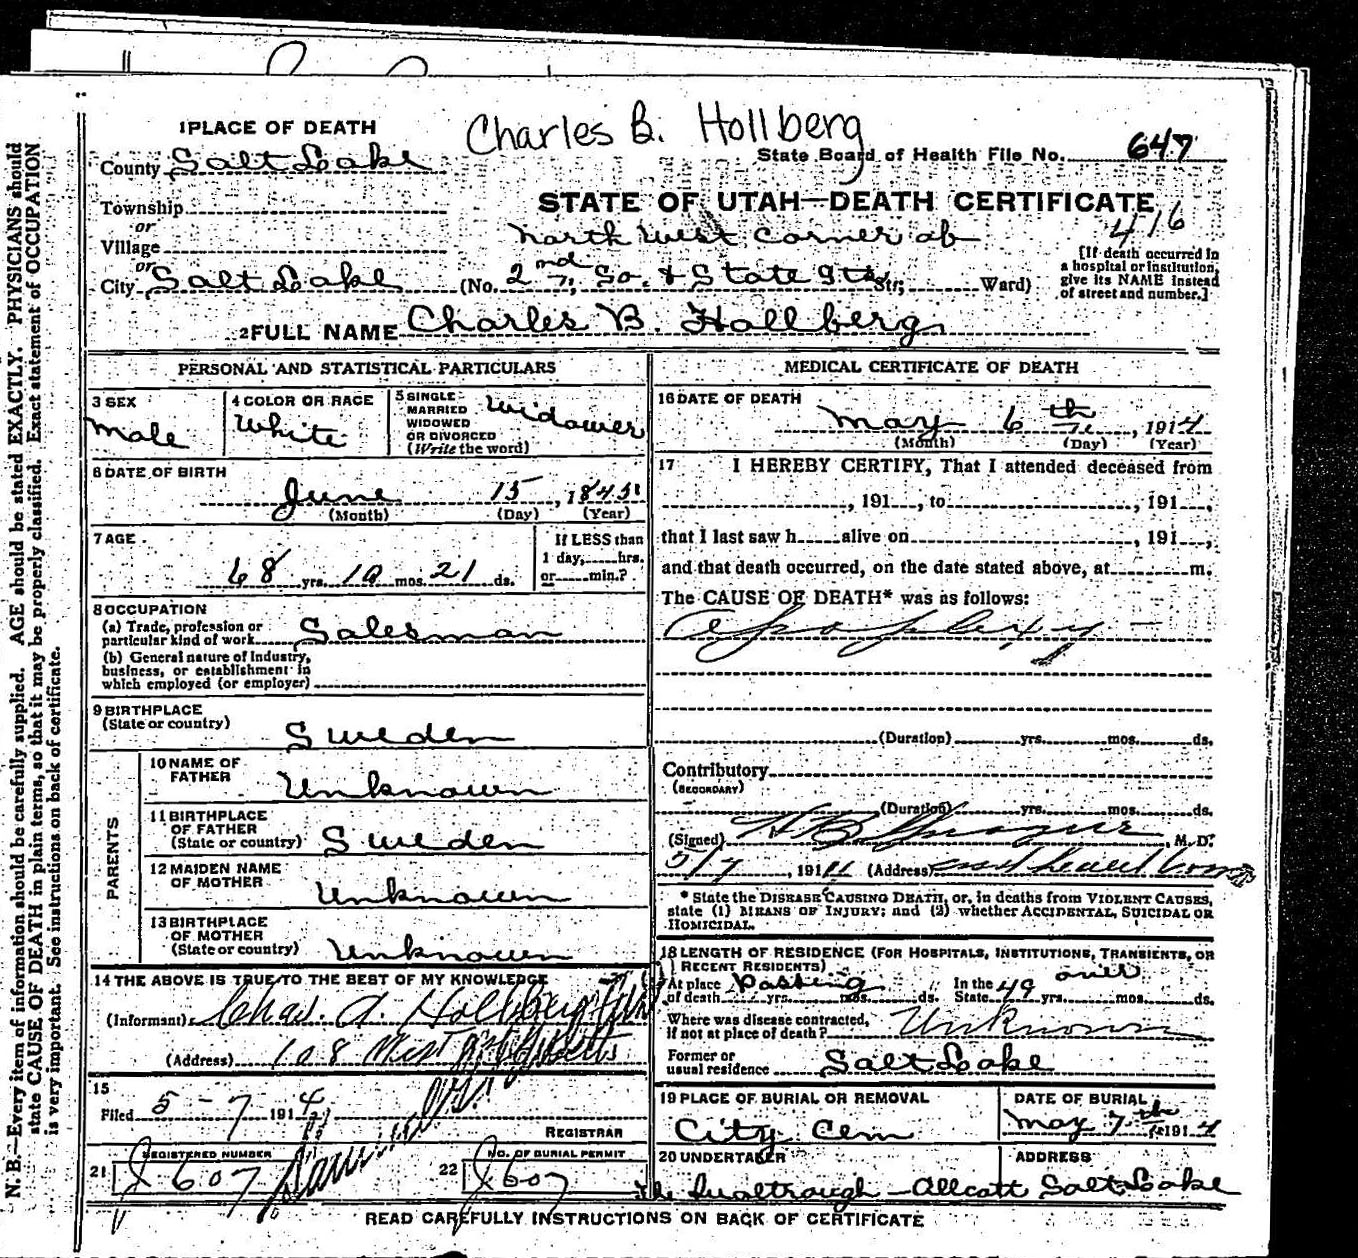 Charles B. Hollberg
1 PLACE OF DEATH
County Salt Lake
State Board of Health File No. 647
STATE OF UTAH—DEATH CERTIFICATE
416
Township
or
Village
or
City Salt Lake (No. North West Corner of 2nd So. & State Sts Str; Ward)
[If death occurred in
a hospital or institution,
give its NAME instead
of street and number.]
2 FULL NAME Charles B. Hollberg
PERSONAL AND STATISTICAL PARTICULARS
3 SEX
Male
4 COLOR OR RACE
White
5 SINGLE
MARRIED
WIDOWED
OR DIVORCED
(Write the word)
Widower
6 DATE OF BIRTH
June 15, 1845
(Month) (Day) (Year)
7 AGE
68 yrs. 10 mos. 21 ds.
If LESS than
1 day, hrs.
or min.?
8 OCCUPATION
(a) Trade, profession or
particular kind of work Salesman
(b) General nature of Industry,
business, or establishment in
which employed (or employer)
9 BIRTHPLACE
(State or country) Sweden
PARENTS
10 NAME OF
FATHER Unknown
11 BIRTHPLACE
OF FATHER
(State or country) Sweden
12 MAIDEN NAME
OF MOTHER Unknown
13 BIRTHPLACE
OF MOTHER
(State or country) Unknown
14 THE ABOVE IS TRUE TO THE BEST OF MY KNOWLEDGE
(Informant) Chas. A. Hollberg
(Address) 108 West
15
Filed 5-7 1914
REGISTRAR
21 REGISTERED NUMBER
J 607
22 NO. OF BURIAL PERMIT
J 607
MEDICAL CERTIFICATE OF DEATH
16 DATE OF DEATH
May 6th, 1914
(Month) (Day) (Year)
17 I HEREBY CERTIFY, That I attended deceased from
, 191 , to , 191 ,
that I last saw h alive on , 191 ,
and that death occurred, on the date stated above, at m.
The CAUSE OF DEATH* was as follows:
Apoplexy
(Duration) yrs. mos. ds.
Contributory
(SECONDARY)
(Duration) yrs. mos. ds.
(Signed) H B Sprague, M. D.
5/7, 1914 (Address)
* State the DISEASE CAUSING DEATH, or, in deaths from VIOLENT CAUSES,
state (1) MEANS OF INJURY; and (2) whether ACCIDENTAL, SUICIDAL OR
HOMICIDAL.
18 LENGTH OF RESIDENCE (FOR HOSPITALS, INSTITUTIONS, TRANSIENTS, OR
RECENT RESIDENTS)
At place
of death Passing yrs. mos. ds. In the
State over 49 yrs. mos. ds.
Where was disease contracted,
if not at place of death? Unknown
Former or
usual residence Salt Lake
19 PLACE OF BURIAL OR REMOVAL
City Cem
DATE OF BURIAL
May 7th 1914
20 UNDERTAKER ADDRESS
Allcott Salt Lake
READ CAREFULLY INSTRUCTIONS ON BACK OF CERTIFICATE
N. B.—Every item of information should be carefully supplied. AGE should be stated EXACTLY. PHYSICIANS should
state CAUSE OF DEATH in plain terms, so that it may be properly classified. Exact statement of OCCUPATION
is very important. See instructions on back of certificate.